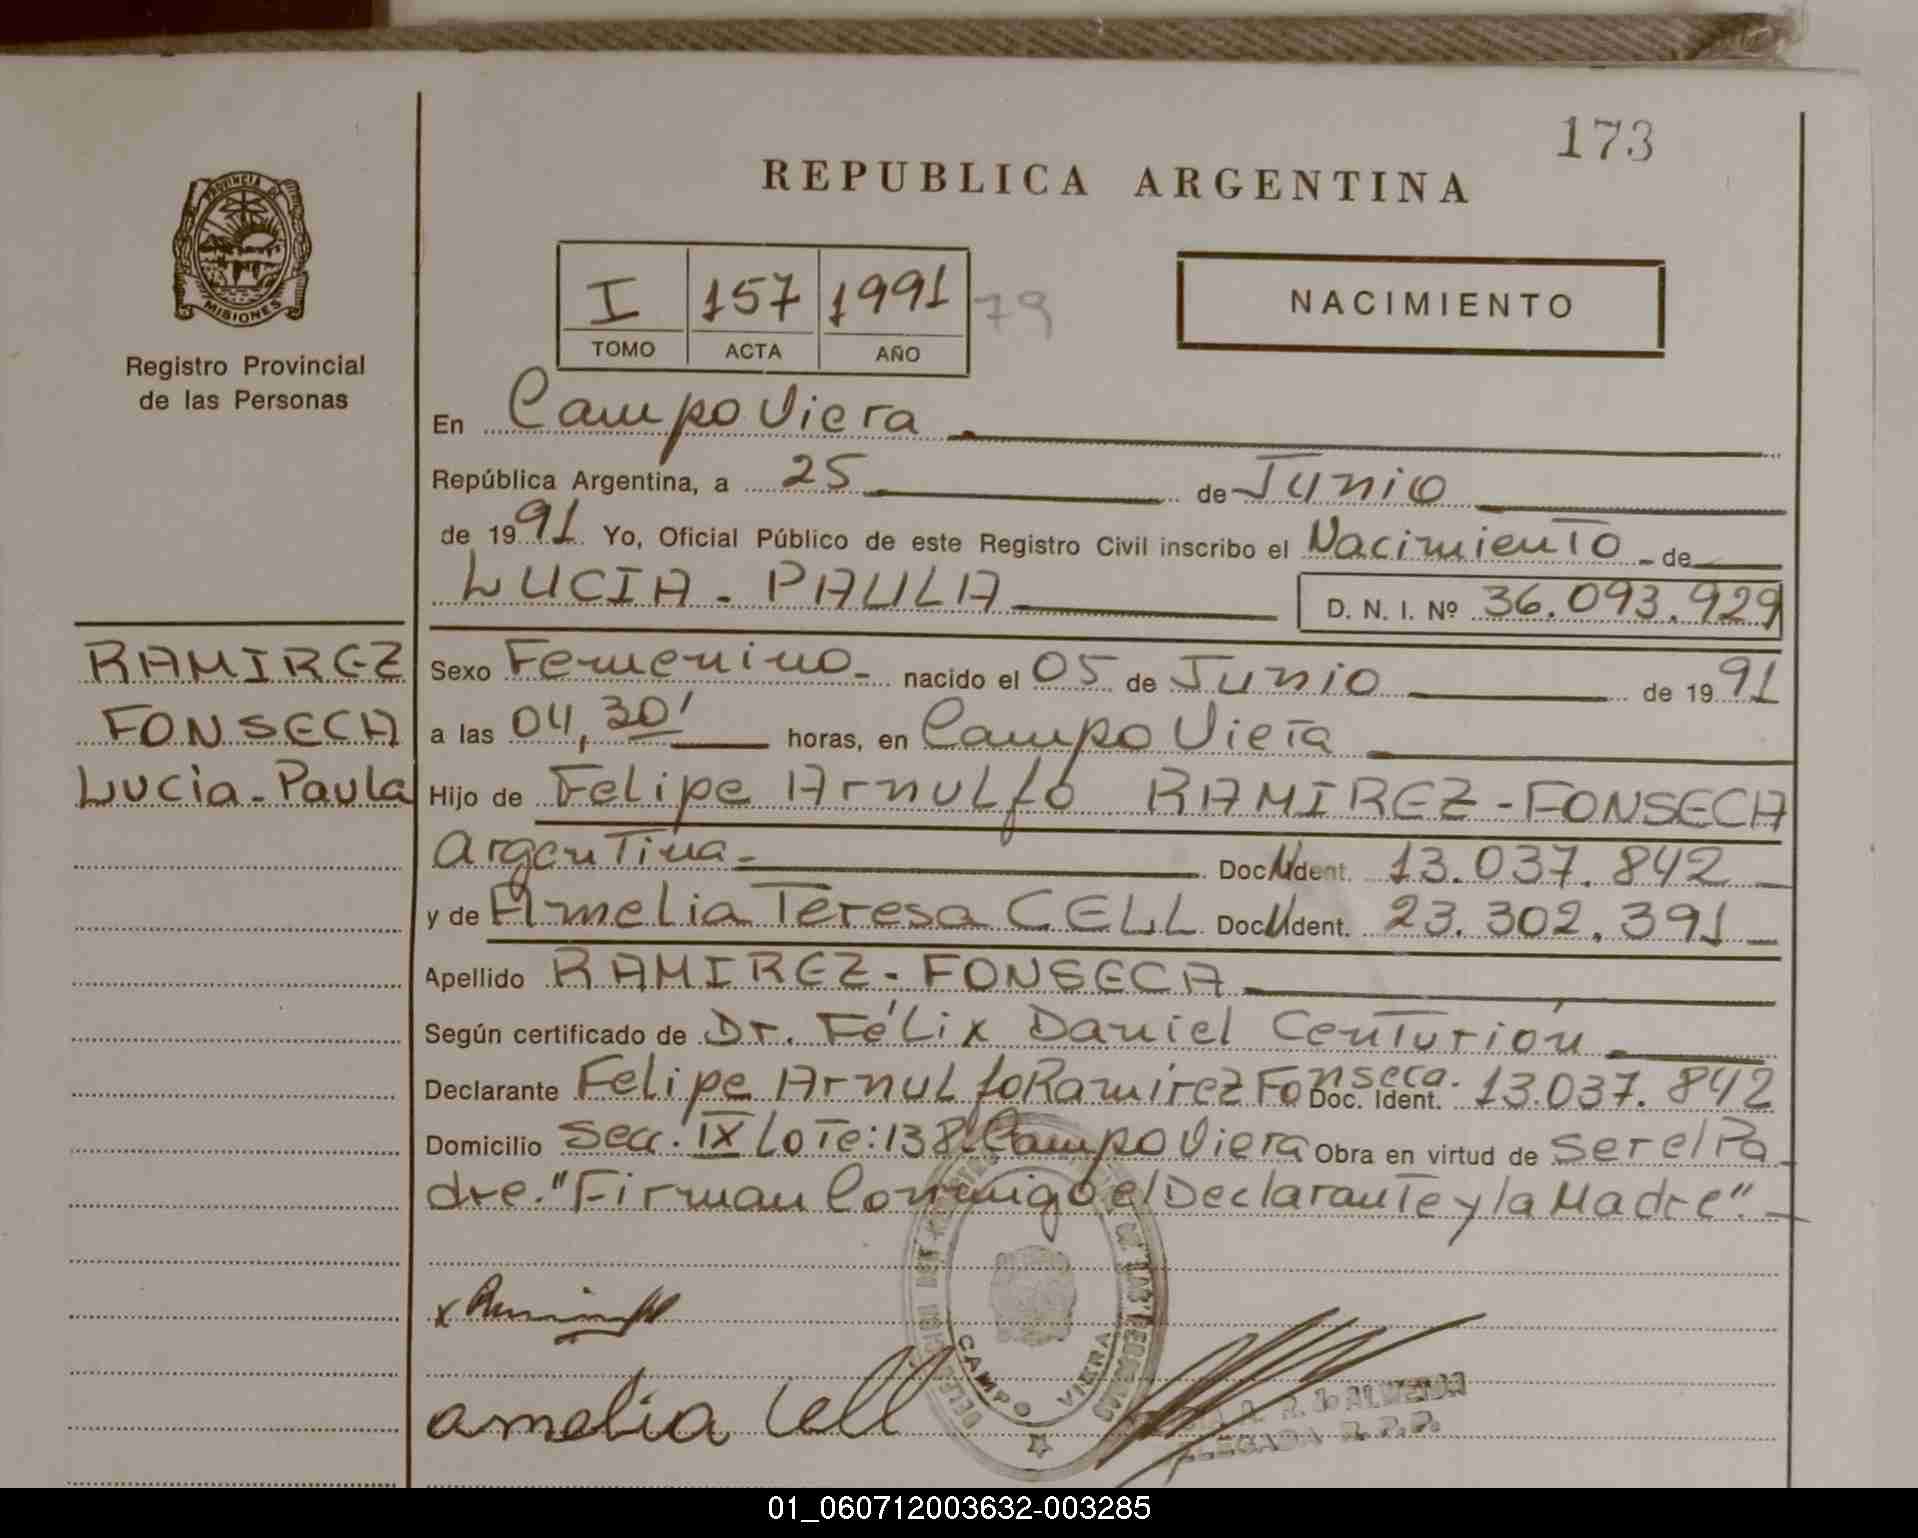 173
REPUBLICA ARGENTINA
PROVINCIA DE
MISIONES
Registro Provincial
de las Personas
I 157 1991 79
TOMO ACTA AÑO
NACIMIENTO
En Campo Viera
República Argentina, a 25 de Junio
de 1991 Yo, Oficial Público de este Registro Civil inscribo el Nacimiento de
LUCIA - PAULA D. N. I. Nº 36.093.929
RAMIREZ
FONSECA
Lucia - Paula
Sexo Femenino - nacido el 05 de Junio de 1991
a las 04,30' horas, en Campo Viera
Hijo de Felipe Arnulfo RAMIREZ - FONSECA
Argentina - Doc. Ident. 13.037.842
y de Amelia Teresa CELL Doc. Ident. 23.302.391
Apellido RAMIREZ - FONSECA
Según certificado de Dr. Félix Daniel Centurión
Declarante Felipe Arnulfo Ramirez Fonseca. Doc. Ident. 13.037.842
Domicilio Secc. IX Lote: 138 Campo Viera Obra en virtud de ser el Pa
dre. "Firman Conmigo el Declarante y la Madre".
amelia Cell
CAMPO VIERA
R. de ALMEIDA
R. P. P.
01_060712003632-003285